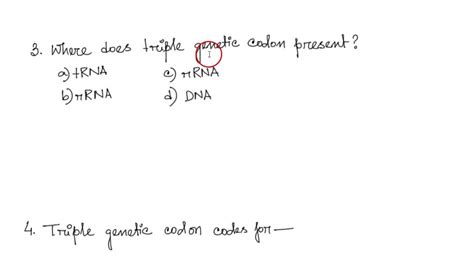 3. Where does triple genetic codon present?
a) tRNA c) mRNA
b) rRNA d) DNA
4. Triple genetic codon codes for—